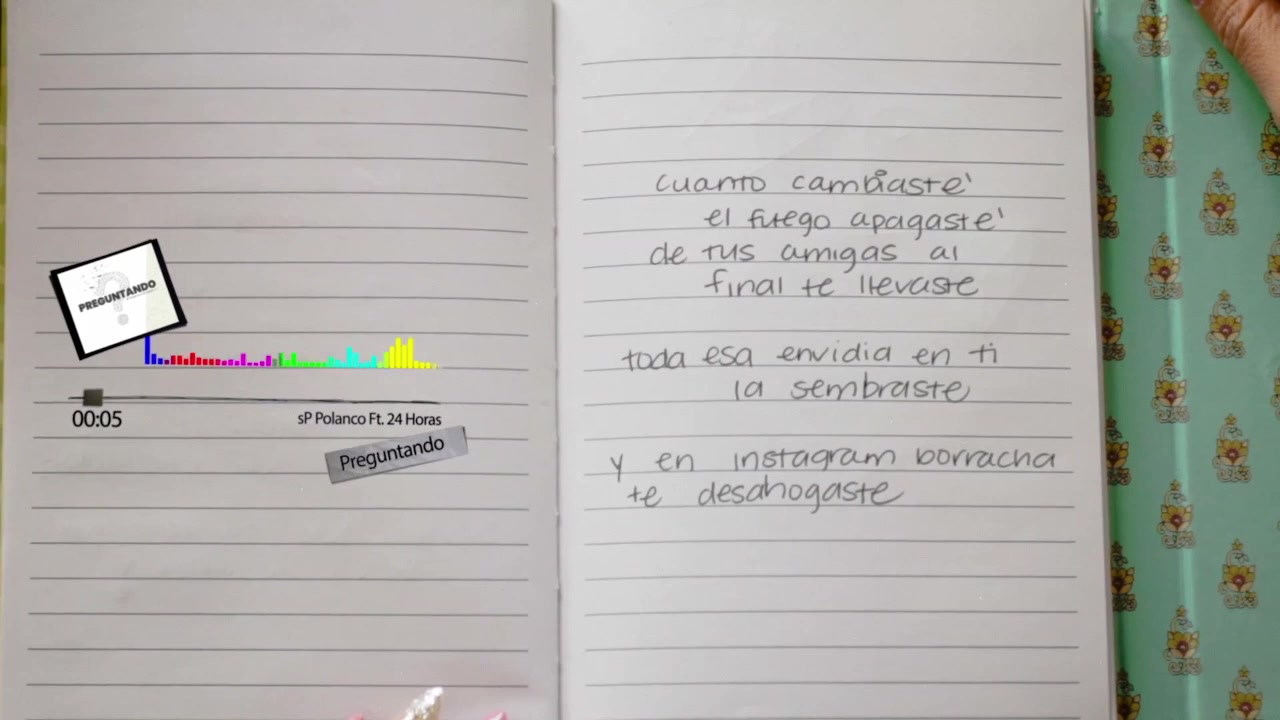 PREGUNTANDO
00:05
sP Polanco Ft. 24 Horas
Preguntando
cuanto cambiaste'
el fuego apagaste'
de tus amigas al
final te llevaste
toda esa envidia en ti
la sembraste
y en instagram borracha
te desahogaste